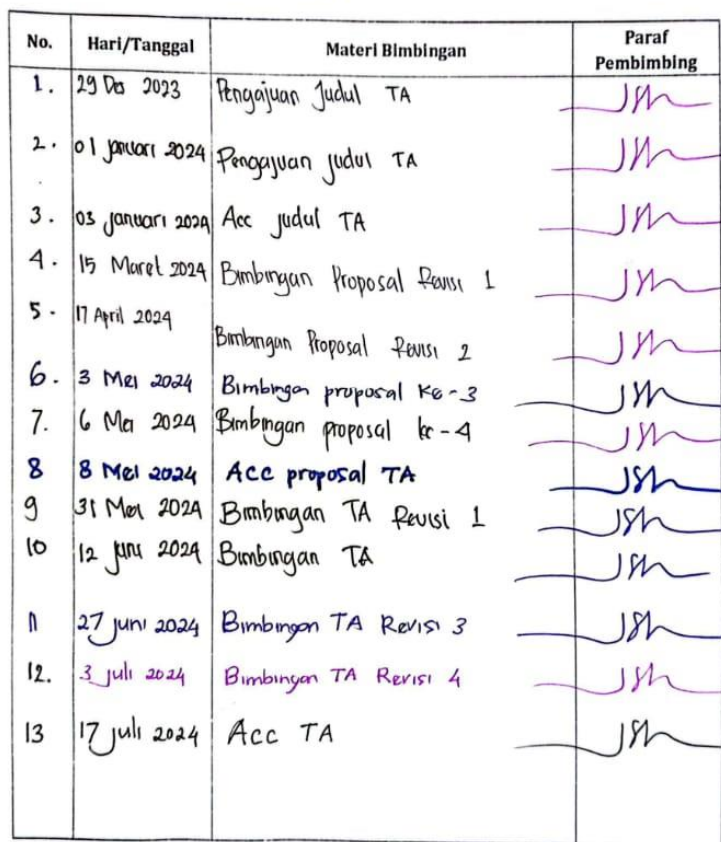 No. Hari/Tanggal Materi Bimbingan Paraf Pembimbing
1. 29 Des 2023 Pengajuan Judul TA
2. 01 januari 2024 Pengajuan judul TA
3. 03 januari 2024 Acc judul TA
4. 15 Maret 2024 Bimbingan Proposal Revisi 1
5. 17 April 2024 Bimbingan Proposal Revisi 2
6. 3 Mei 2024 Bimbingan proposal Ke-3
7. 6 Mei 2024 Bimbingan proposal ke-4
8 8 Mei 2024 Acc proposal TA
9 31 Mei 2024 Bimbingan TA Revisi 1
10 12 juni 2024 Bimbingan TA
11 27 juni 2024 Bimbingan TA Revisi 3
12. 3 juli 2024 Bimbingan TA Revisi 4
13 17 juli 2024 Acc TA